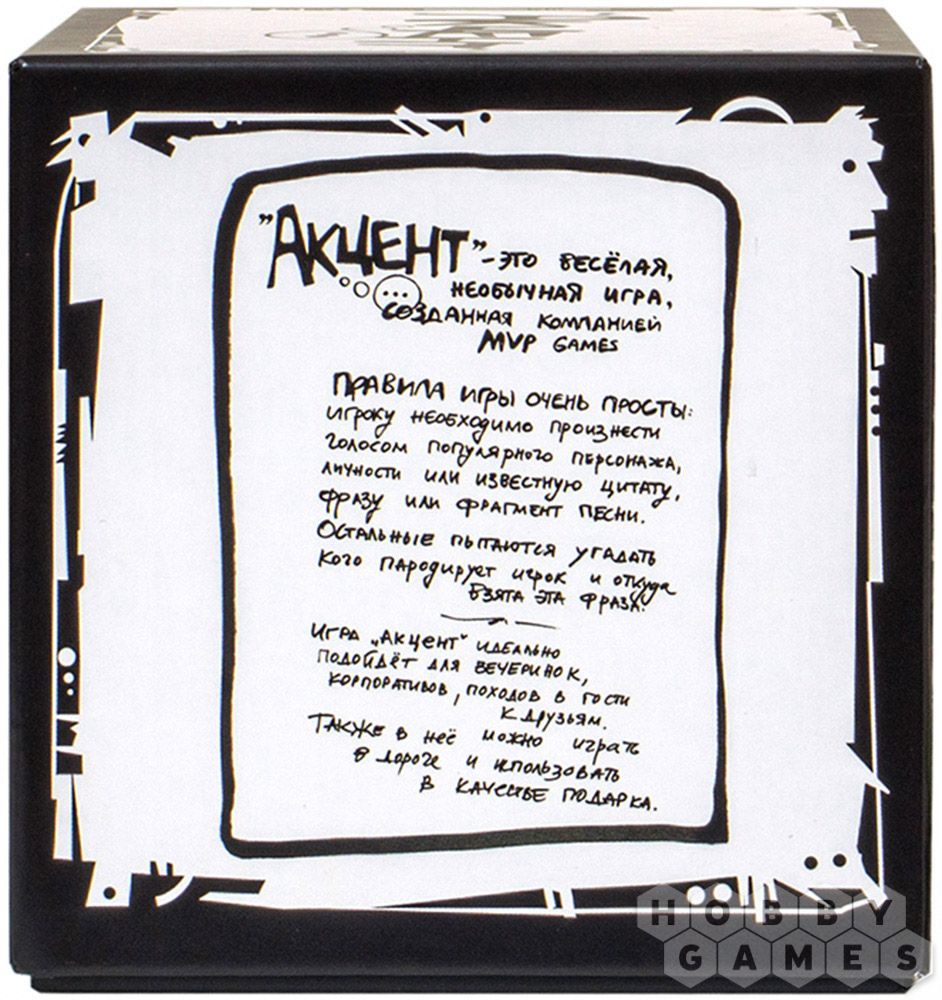 "Акцент" - это весёлая,
необычная игра,
созданная компанией
MVP GAMES
Правила игры очень просты:
игроку необходимо произнести
голосом популярного персонажа,
личности или известную цитату,
фразу или фрагмент песни.
Остальные пытаются угадать
кого пародирует игрок и откуда
взята эта фраза.
Игра „Акцент" идеально
подойдёт для вечеринок,
корпоративов, походов в гости
к друзьям.
Также в неё можно играть
в дороге и использовать
в качестве подарка.
HOBBY
GAMES